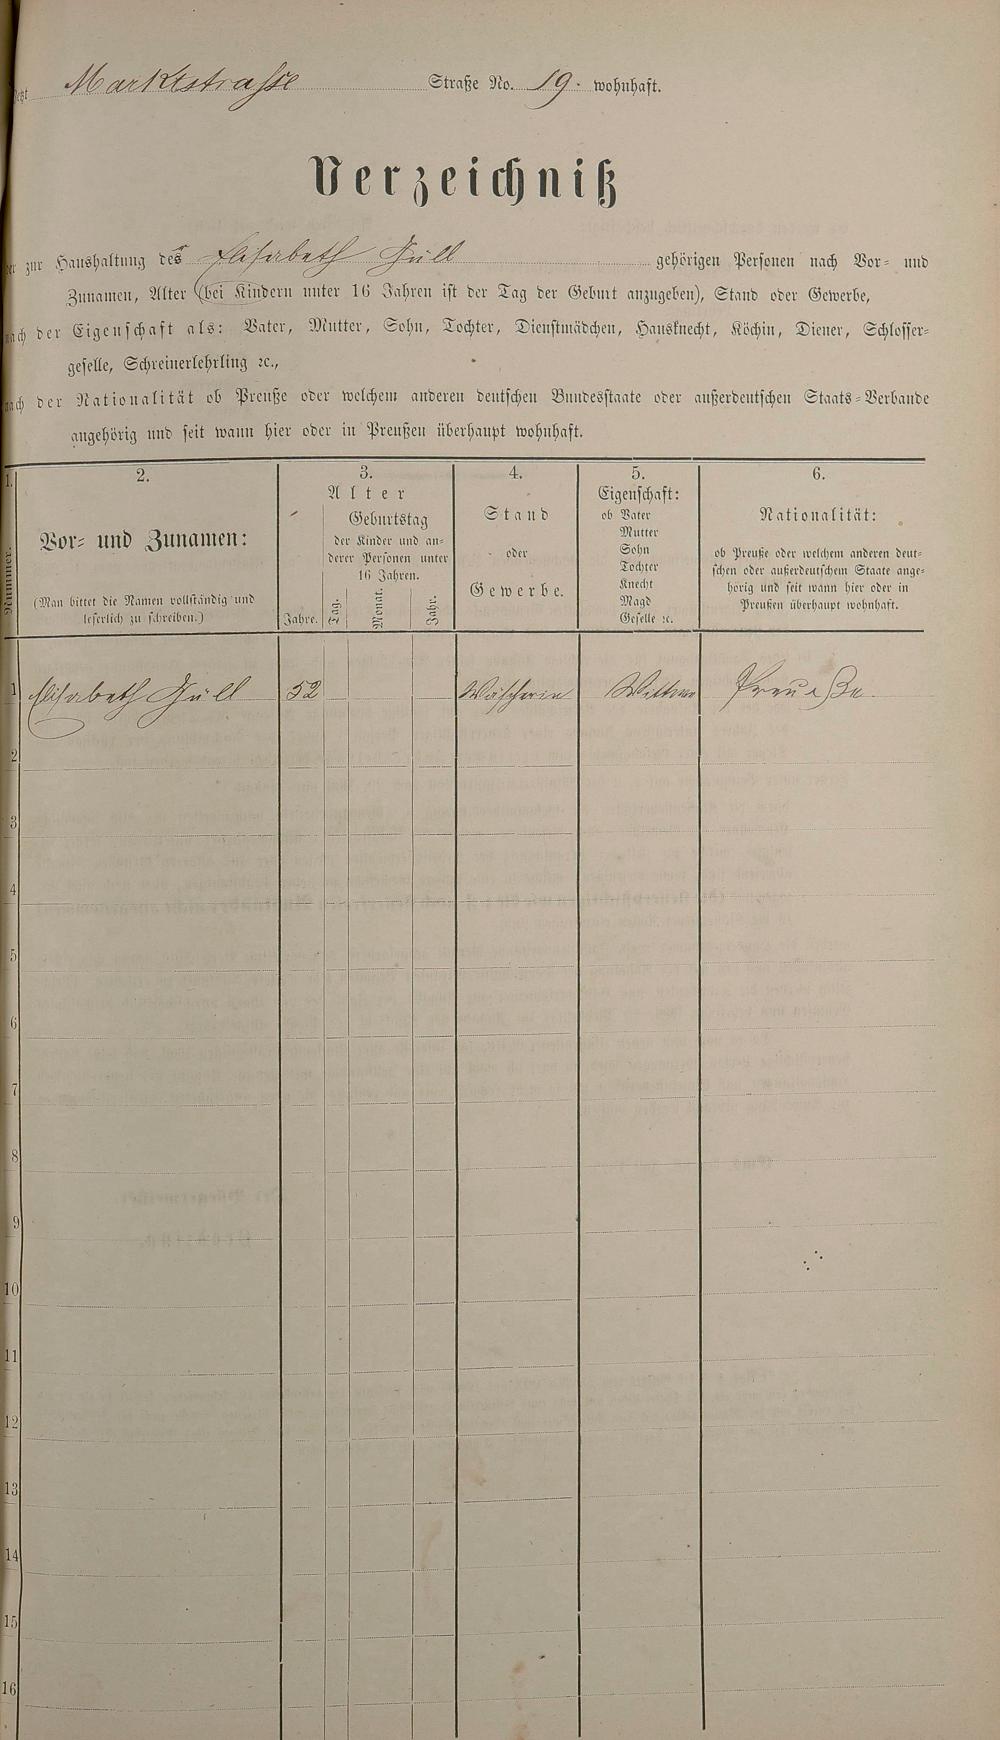 Jetzt Marktstrasse Straße No. 19. wohnhaft.
Verzeichniß
der zur Haushaltung des Elisabeth Güll gehörigen Personen nach Vor- und
Zunamen, Alter (bei Kindern unter 16 Jahren ist der Tag der Geburt anzugeben), Stand oder Gewerbe,
nach der Eigenschaft als: Vater, Mutter, Sohn, Tochter, Dienstmädchen, Hausknecht, Köchin, Diener, Schlosser-
geselle, Schreinerlehrling ꝛc.,
nach der Nationalität ob Preuße oder welchem anderen deutschen Bundesstaate oder außerdeutschen Staats-Verbande
angehörig und seit wann hier oder in Preußen überhaupt wohnhaft.
1.
Nummer.
2.
Vor- und Zunamen:
(Man bittet die Namen vollständig und
leserlich zu schreiben.)
3.
Alter
Geburtstag
der Kinder und an-
derer Personen unter
16 Jahren.
Jahre.
Tag.
Monat.
Jahr.
4.
Stand
oder
Gewerbe.
5.
Eigenschaft:
ob Vater
Mutter
Sohn
Tochter
Knecht
Magd
Geselle ꝛc.
6.
Nationalität:
ob Preuße oder welchem anderen deut-
schen oder außerdeutschem Staate ange-
hörig und seit wann hier oder in
Preußen überhaupt wohnhaft.
1 Elisabeth Güll 52 Wäscherin Wittwe Preueße.
2
3
4
5
6
7
8
9
10
11
12
13
14
15
16